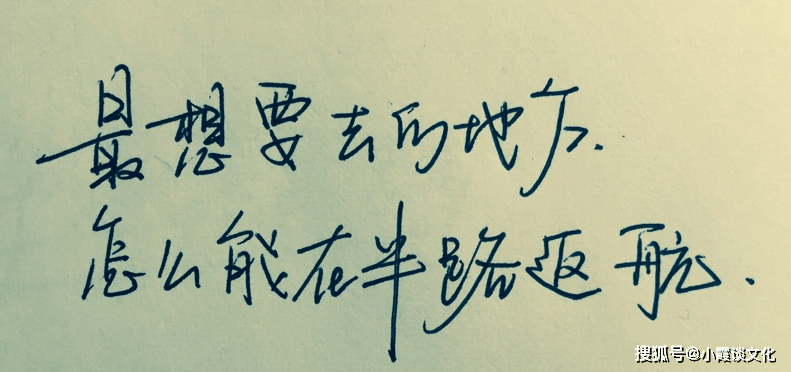 最想要去的地方.
怎么能在半路返航.
搜狐号@小霞谈文化